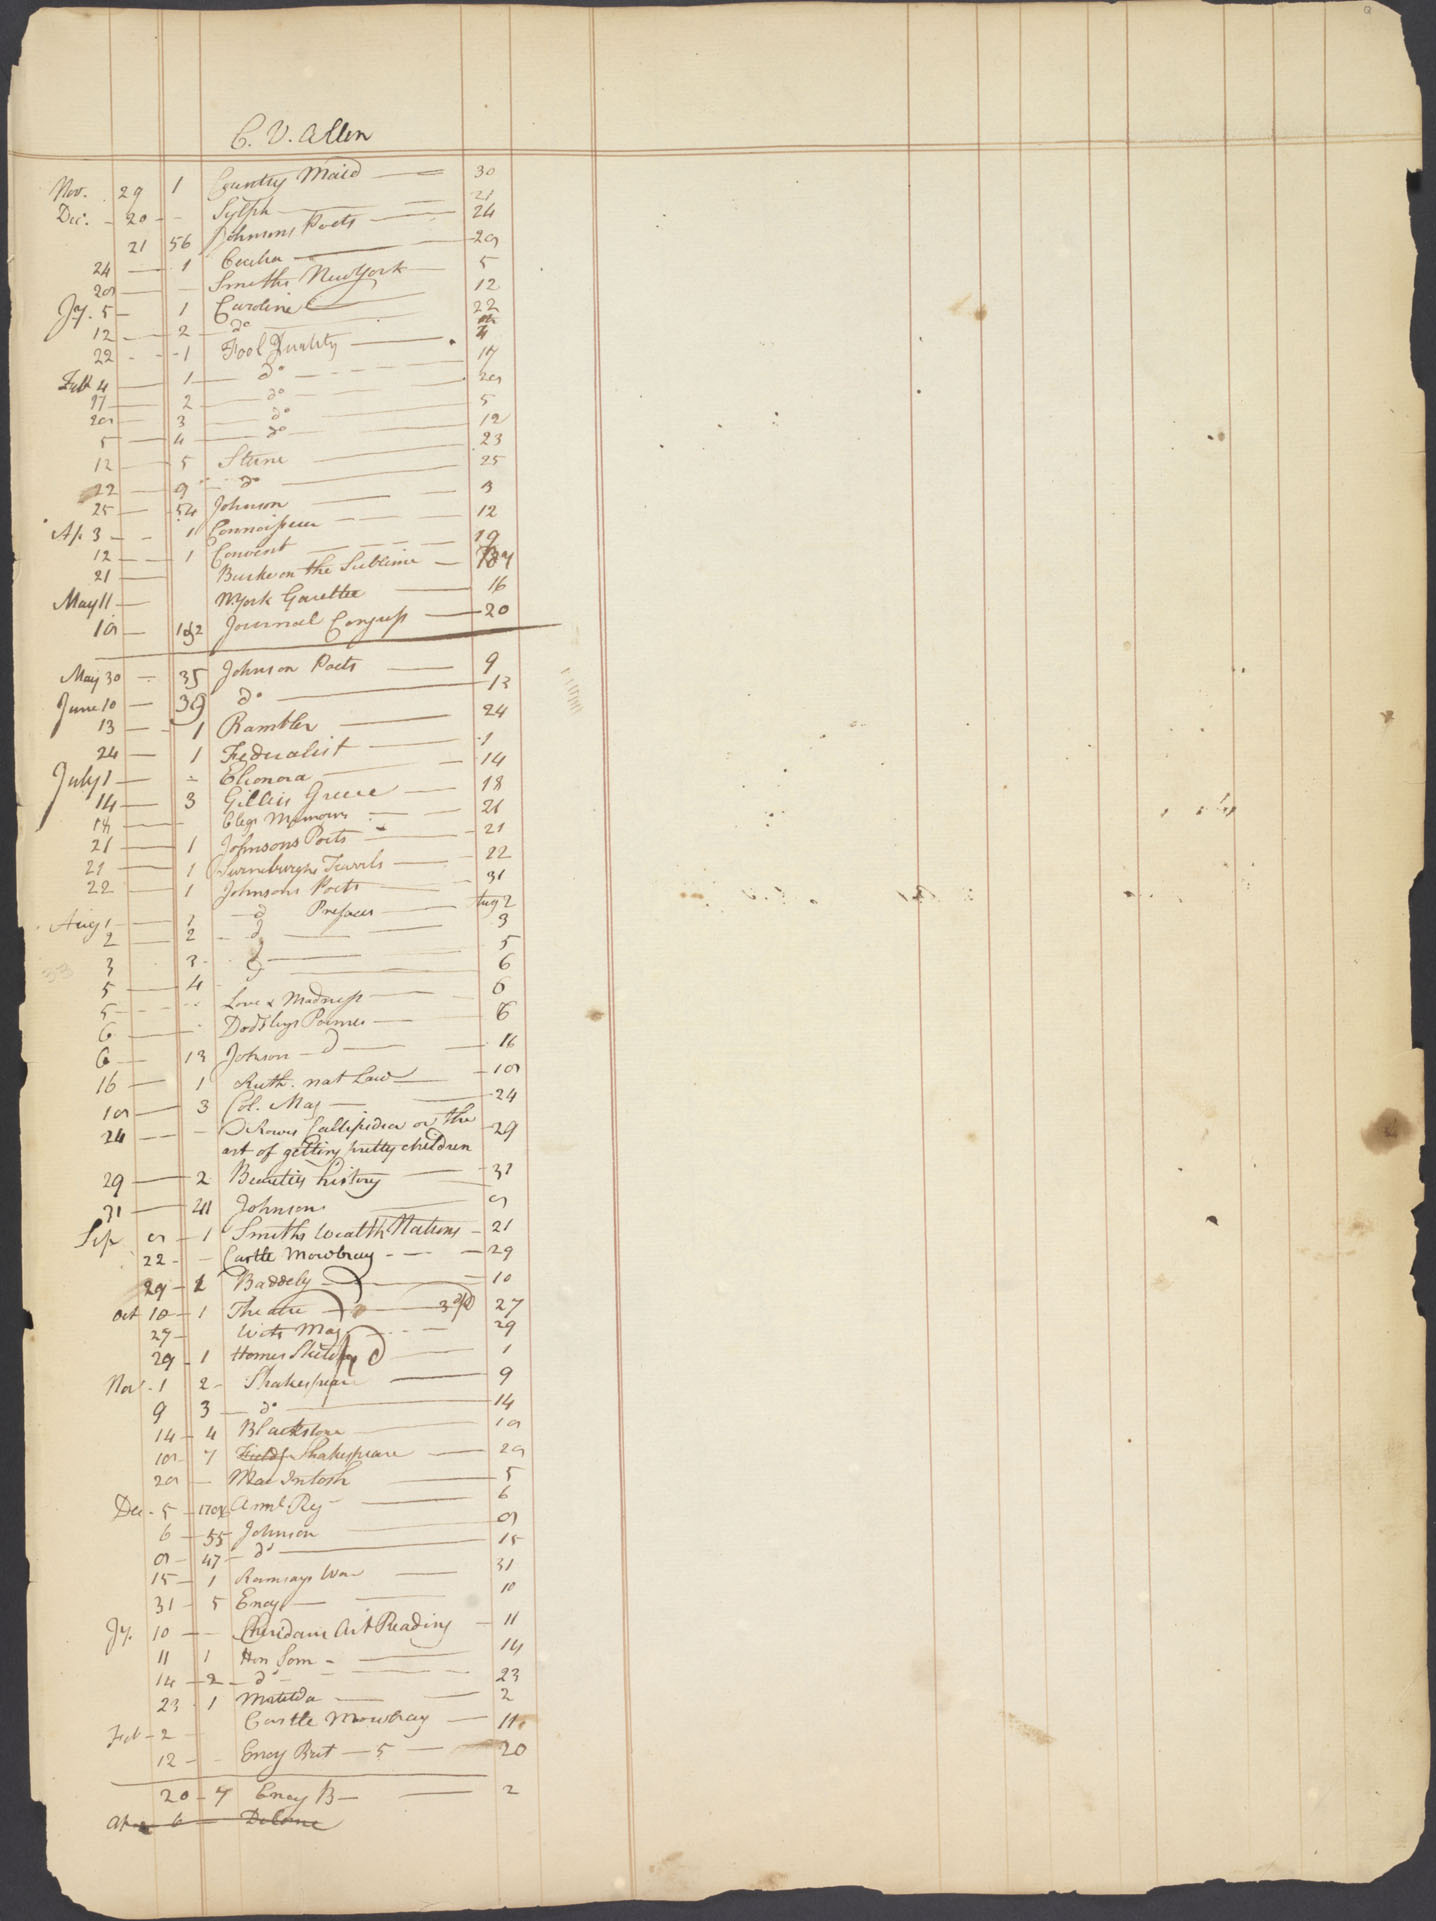 C. V. Allen
Nov. 29 1 Country Maid — 30
Dec. - 20 - - Sylph — 21
21 56 Johnsons Poets — 24
24 — 1 Cecilia — 29
29 — - Smiths New York — 5
Jy. 5 — 1 Caroline — 12
12 — 2 — do — 22
22 - - 1 Fool Quality — 4
Feb 4 — 1 — do — 17
17 — 2 — do — 29
29 — 3 — do — 5
5 — 4 — do — 12
12 — 5 Sterne — 23
22 — 9 — do — 25
25 — 54 Johnson — 3
Ap. 3 - - 1 Connoisseur — 12
12 — 1 Convent — 19
21 — Burke on the Sublime —
May 11 — N. York Gazettee — 16
19 — Journal Congress — 20
May 30 — 35 Johnson Poets — 9
June 10 — 39 do — 13
13 — 1 Rambler — 24
24 — 1 Federalist — 1
July 1 — - Elionora — 14
14 — 3 Gillies Greece — 18
18 — Memoirs — 21
21 — 1 Johnsons Poets — 21
21 — 1 Swineburghs Travels — 22
22 — 1 Johnsons Poets — 31
Aug 1 — 1 — d Prefaces — Aug 2
2 — 2 - d — 3
3 - 3 - d — 5
5 — 4 - d — 6
5 - - - Love & Madness — 6
6 — - Dodsleys Poems — 6
6 — 13 Johnson - d — 16
16 — 1 Ruth. nat Law — 19
19 — 3 Col. Mag — 24
24 — - Rowes Callipidia or the — 29
art of getting pretty children
29 — 2 Beauties history — 31
31 — 41 Johnson — 9
Sep 9 — 1 Smiths Wealth Nations — 21
22 - - Castle Mowbray - — 29
29 — 1 Baddely — 10
Oct 10 — 1 Theatre — 27
27 - Wits Mag — 29
29 - 1 Homes Sketches — 1
Nov. 1 2 - Shakespear — 9
9 3 — do — 14
14 — 4 Blackstone — 19
19 - 7 Shakespeare — 29
29 — Mac Intosh — 5
Dec - 5 — Annl Reg — 6
6 — 55 Johnson — 9
9 — 47 — do — 15
15 — 1 Ramsays War — 31
31 - 5 Ency — 10
Jy. 10 — Sheridans Art Reading — 11
11 1 Hon Som - — 14
14 — 2 — do — 23
23 - 1 Matilda — 2
Feb - 2 - Castle Mowbray — 11
12 - - Ency Brit — 5 — 20
20 - 7 Ency B — 2
6 — Delome